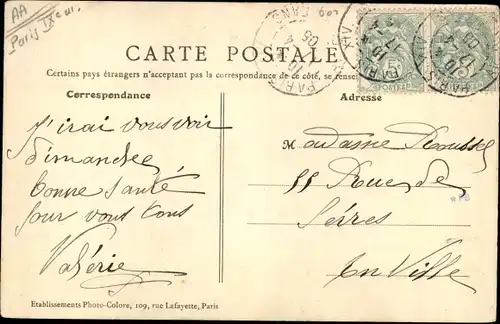 AA
Paris IXeur.
CARTE POSTALE
Certains pays étrangers n'acceptant pas la correspondance de ce côté, se
Correspondance
Adresse
J'irai vous voir
dimanche
bonne santé
pour vous tous
Valérie
Madame Roussel
55 Rue de
Sèvres
En Ville
Etablissements Photo-Colore, 109, rue Lafayette, Paris